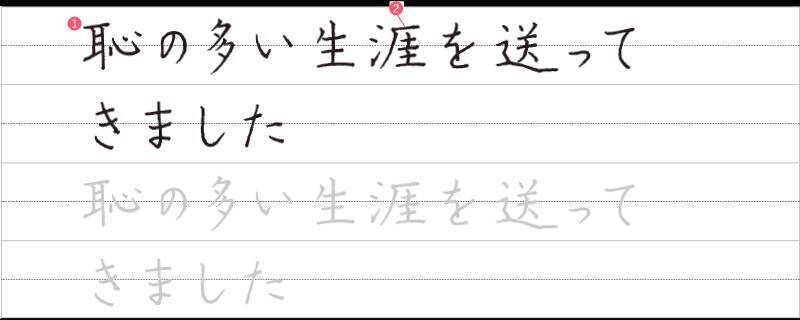 ① ②
恥の多い生涯を送って
きました
恥の多い生涯を送って
きました